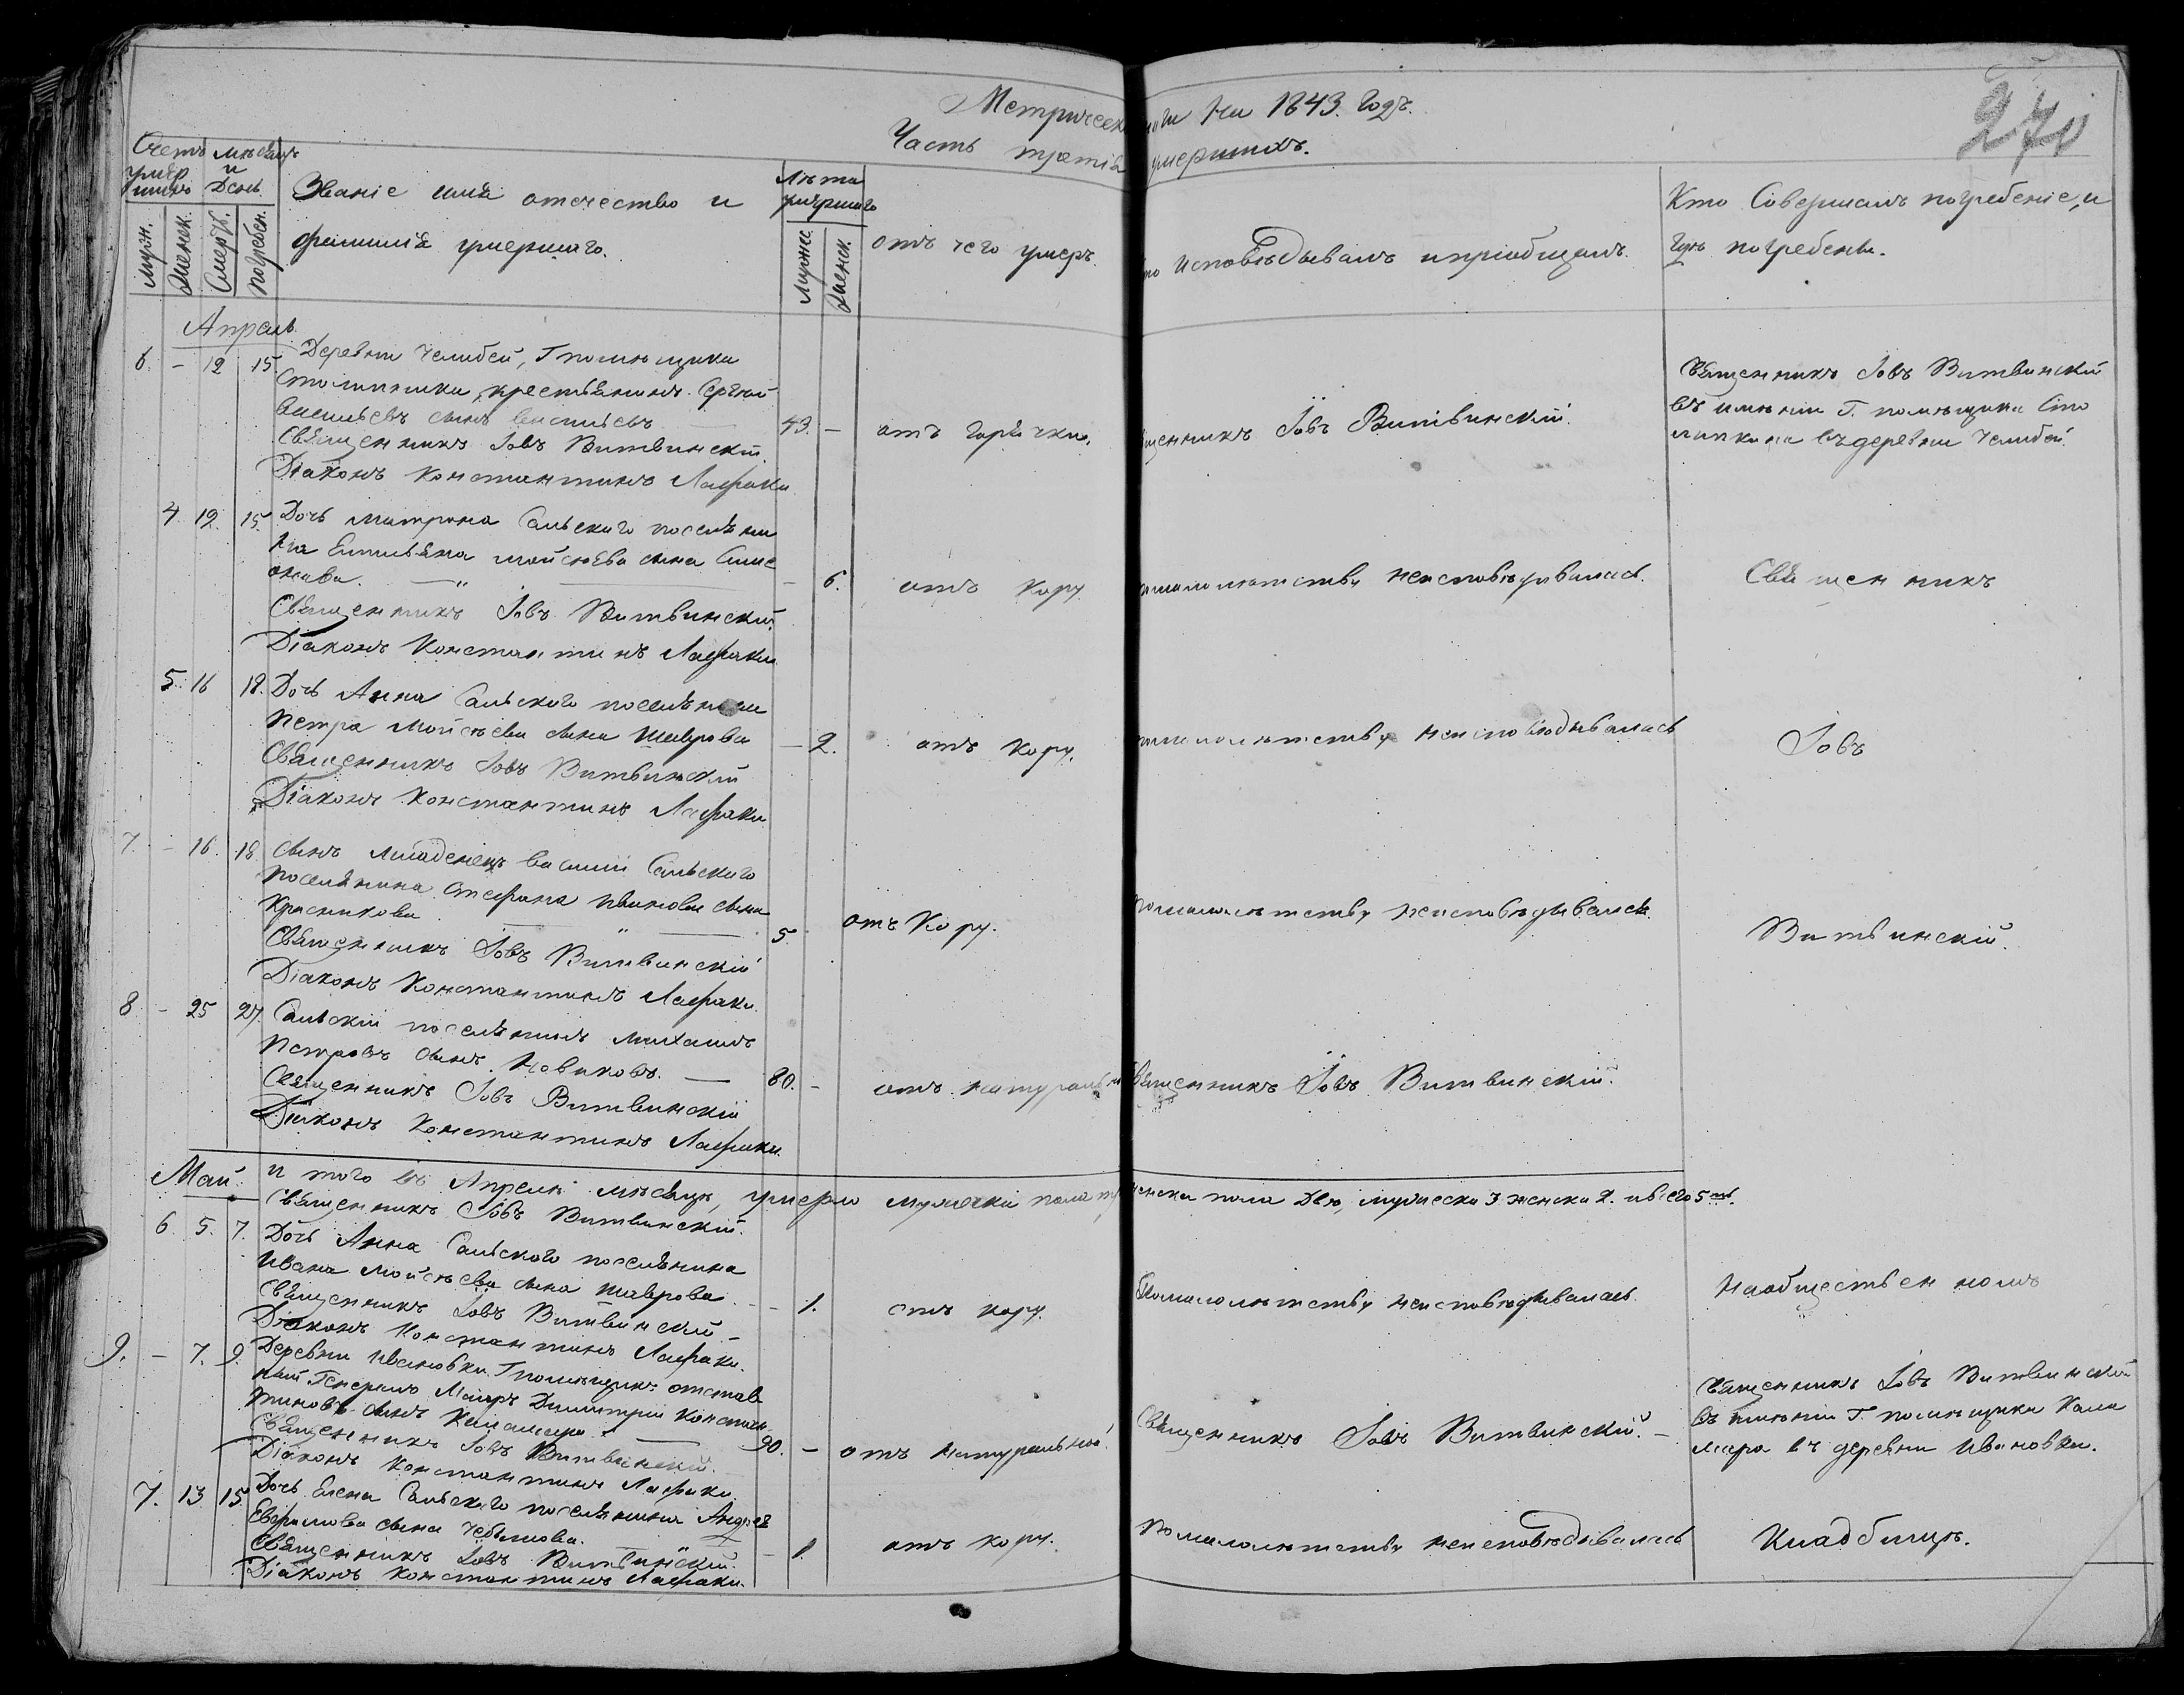 Метрической книги на 1843. годъ.
Часть третія умершихъ.
270
Счетъ умершихъ
Мужс.
Женск.
мѣсяцъ и День
Смерт.
погребен.
Званіе имя отечество и
фамилія умершаго.
Лѣта умершаго
Мужес.
Женск.
отъ чего умеръ.
исповѣдывалъ и пріобщалъ.
Кто Совершалъ погребеніе, и
гдѣ погребены.
Апрель
6. - 12 15. Деревни Челибей, Г помѣщика
крестьянинъ. Сергѣй
васильевъ сынъ васильевъ
43. - отъ горячки.
Священникъ Іовъ Витвинскій.
Діаконъ Константинъ Лафаки
Священникъ Іовъ Витвинскій.
Священникъ Іовъ Витвинскій
въ имѣніи Г. помѣщика Сто
въ деревни Челибей.
4. 12. 15. Дочь матрона Сельского поселяни
на Емильяна мойсѣева сына Симе
онова.
- 6. отъ кору.
Священникъ Іовъ Витвинскій.
Діаконъ Константинъ Лафаки
помалолѣтству неисповѣдывалась.
Священникъ
5. 16 18. Дочь Анна Сельского поселянина
Петра Мойсѣева сына Шаврова
- 2. отъ кору.
Священникъ Іовъ Витвинскій
Діаконъ Константинъ Лафаки
помалолѣтству неисповѣдывалась
Іовъ
7. - 16. 18. сынъ младенецъ василій Сельского
поселянина Стефана иванова сына
Красникова
5. отъ Кору.
Священникъ Іовъ Витвинскій
Діаконъ Константинъ Лафаки
помалолѣтству неисповѣдывался.
Витвинскій.
8. - 25 27. Сельскій поселянинъ михаилъ
Петровъ сынъ Новиковъ.
80. - отъ натуральн
Священникъ Іовъ Витвинскій
Діаконъ Константинъ Лафаки.
Священникъ Іовъ Витвинскій.
и того въ Апрелѣ мѣсяцѣ, умерло мужеска пола три женска пола Двѣ, мужеска 3 женска 2. и всего 5ть.
Священникъ Іовъ Витвинскій.
Май.
6. 5. 7. Дочь Анна Сельского поселянина
Ивана Мойсѣева сына Шаврова
- 1. отъ кору.
Священникъ Іовъ Витвинскій
Діаконъ Константинъ Лафаки.
Помалолѣтству неисповѣдывалась.
Наобщественномъ
9. - 7. 9. Деревни Ивановки Г помѣщикъ отстав
ный Генералъ Маіоръ Димитрій Констан
тиновъ сынъ
90. - отъ натуральной.
Священникъ Іовъ Витвинскій.
Діаконъ Константинъ Лафаки
Священникъ Іовъ Витвинскій.
Священникъ Іовъ Витвинскій
въ имѣніи Г. помѣщика Кала
мара въ деревни Ивановки.
7. 13. 15. Дочь Елена Сельского поселянина Андрея
Евфимова сына
- 1. отъ кору.
Священникъ Іовъ Витвинскій.
Діаконъ Константинъ Лафаки.
Помалолѣтству неисповѣдывалась
Кладбищѣ.